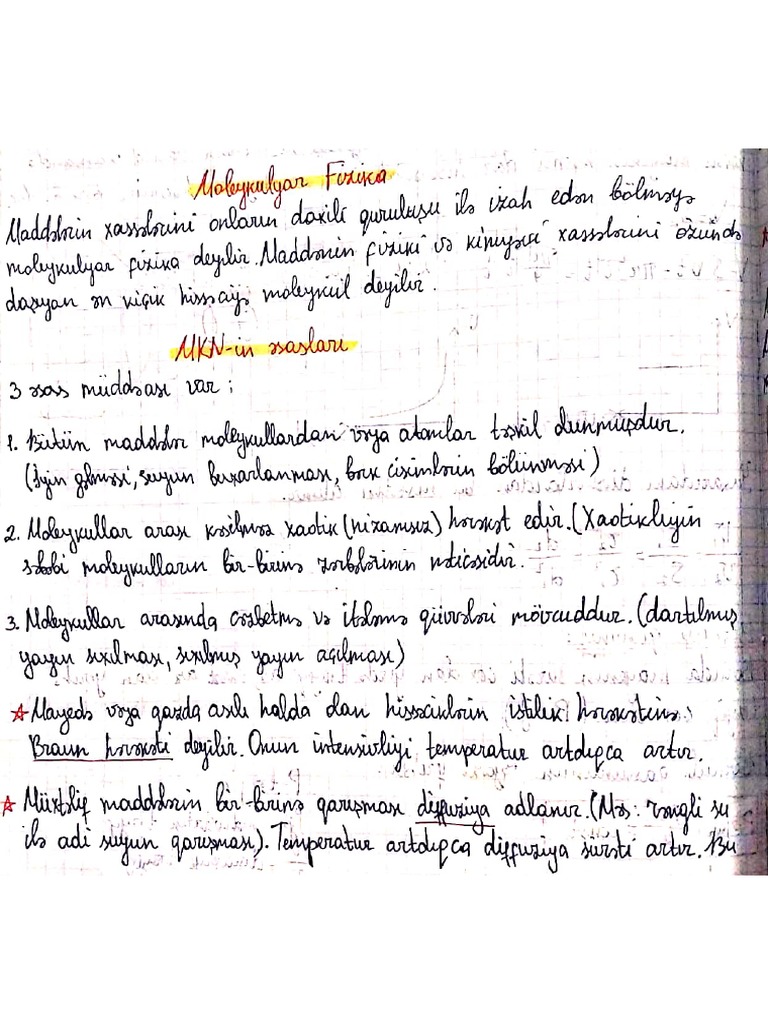 Moleykulyar Fizika
Maddələrin xassələrini onların daxili quruluşu ilə izah edən bölməyə
moleykulyar fizika deyilir. Maddənin fiziki və kimyəvi xassələrini özündə
daşıyan ən kiçik hissəciyə moleykul deyilir.
MKN-in əsasları
3 əsas müddəası var:
1. Bütün maddələr moleykullardan vəya atomlar təşkil olunmuşdur.
(İyin gəlməsi, suyun buxarlanması, bərk cisimlərin bölünməsi)
2. Moleykullar arası kəsilməz xaotik (nizamsız) hərəkət edir. (Xaotikliyin
səbəbi moleykulların bir-birinə zərbələrinin nəticəsidir.
3. Moleykullar arasında cəzbetmə və itələmə qüvvələri mövcuddur. (dartılmış
yayın sıxılması, sıxılmış yayın açılması)
☆ Mayedə vəya qazda asılı halda olan hissəciklərin istilik hərəkətinə
Braun hərəkəti deyilir. Onun intensivliyi temperatur artdıqca artır.
☆ Müxtəlif maddələrin bir-birinə qarışması diffuziya adlanır. (Məs: rəngli su
ilə adi suyun qarışması). Temperatur artdıqca diffuziya sürəti artır. Bu